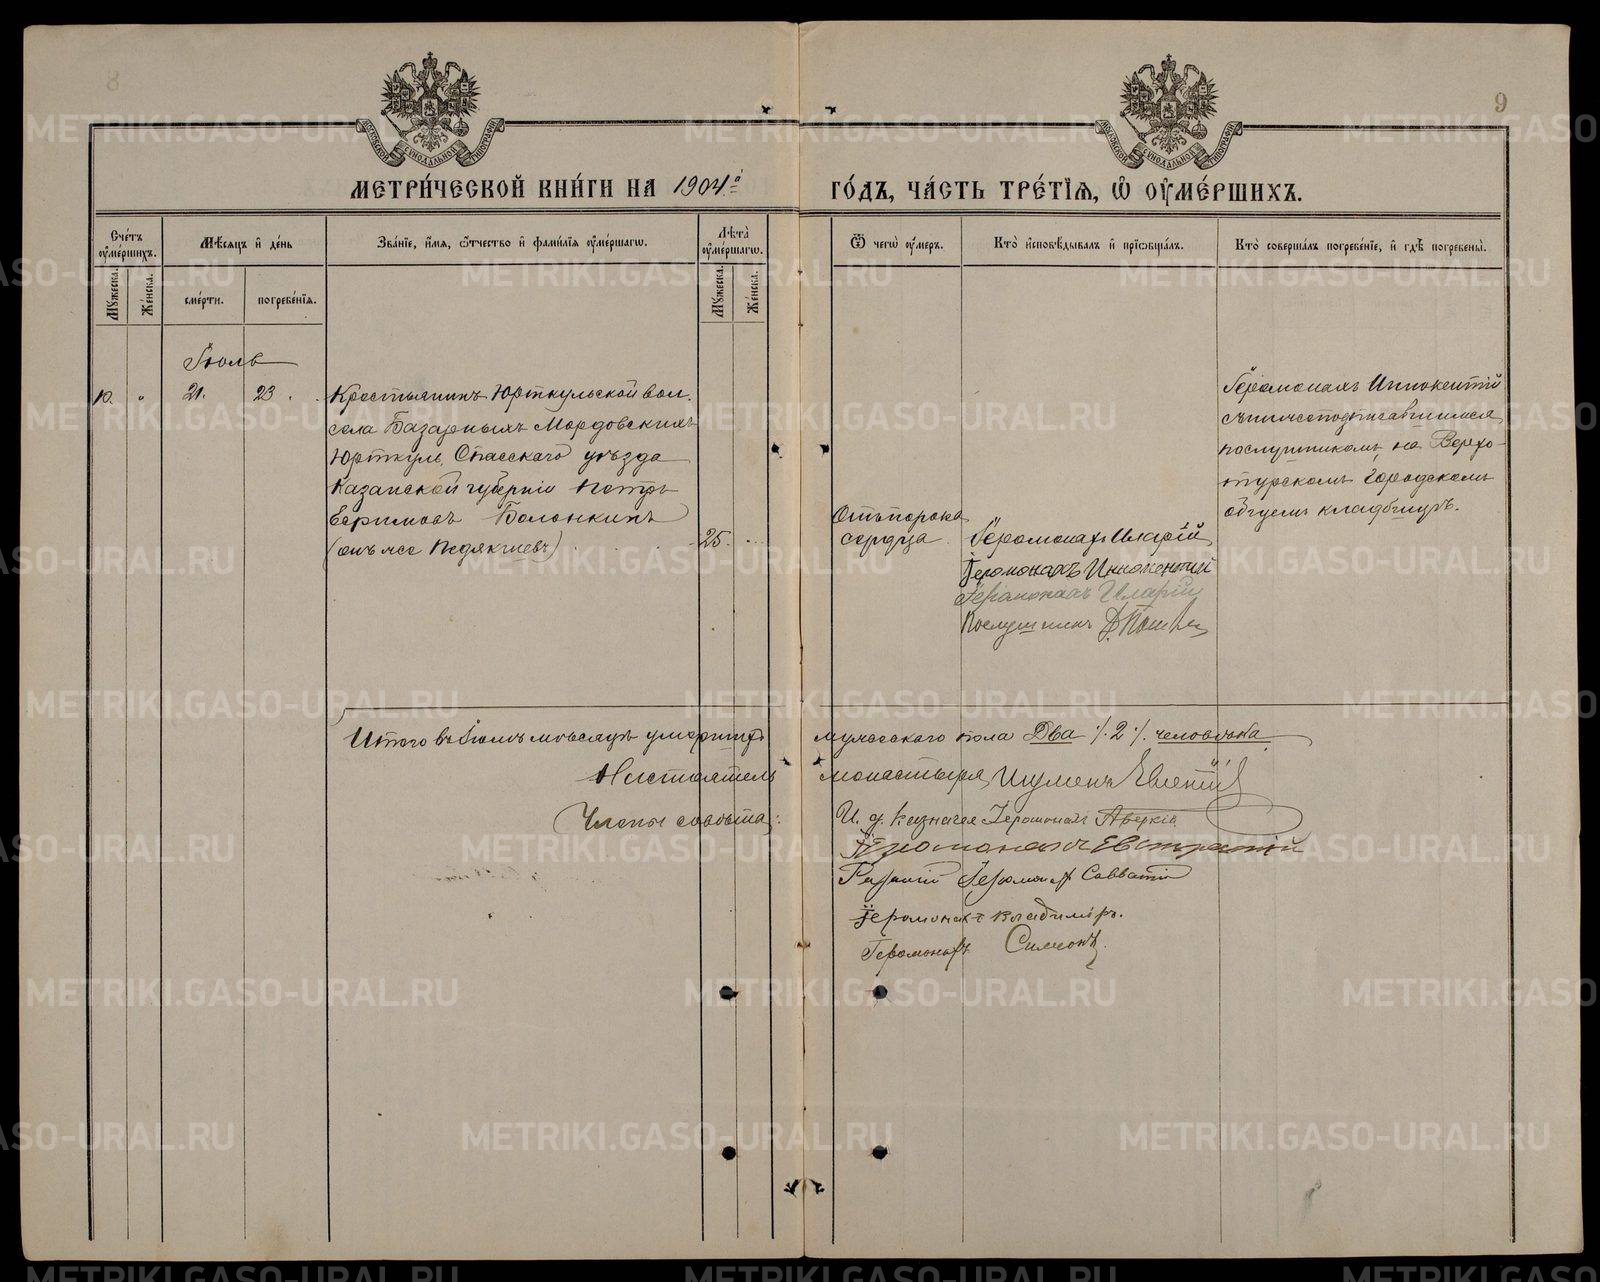 8
9
МОСКОВСКОЙ СѴНОДАЛЬНОЙ ТИПОГРАФІИ
МОСКОВСКОЙ СѴНОДАЛЬНОЙ ТИПОГРАФІИ
МЕТРИ́ЧЕСКОЙ КНИ́ГИ НА 1904.й
ГО́ДЪ, ЧА́СТЬ ТРЕ́ТІѦ, Ѡ҆ ОУ҆МЕ́РШИХЪ.
Сче́тъ оу҆ме́ршихъ.
Мꙋжеска.
Же́нска.
Мѣ́сѧцъ и҆ де́нь
сме́рти.
погребе́нїѧ.
Зва́нїе, и҆́мѧ, ѻ҆́тчество и҆ фами́лїѧ оу҆ме́ршагѡ.
Лѣ́та оу҆ме́ршагѡ.
Мꙋжеска.
Же́нска.
Ѿ чегѡ̀ оу҆́меръ.
Кто̀ и҆сповѣ́дывалъ и҆ прїѡбща́лъ.
Кто̀ соверша́лъ погребе́нїе, и҆ гдѣ̀ погребены̀.
Іюль
10. " 21. 23.
Крестьянинъ Юрткульской вол.
села Базарныхъ Мордовскихъ
Юрткуль, Спасскаго уѣзда
Казанской губерніи Петръ
Ефимовъ Болонкинъ
(онъ же Педякшевъ) 25.
Отъ порока
сердца
Іеромонахъ Иларій
Іеромонахъ Иннокентій
Іеромонахъ Иларій
Послушникъ
Іеромонахъ Иннокентій
съ нижеподписавшимся
послушникомъ, на Верхо-
турскомъ городскомъ
общемъ кладбищѣ.
Итого въ Іюлѣ мѣсяцѣ умершихъ мужескаго пола Два ·/. 2 ·/. человѣка
Настоятель монастыря, Игуменъ
Члены совѣта: И. д. Казначея Іеромонахъ Аверкій
Іеромонахъ Евстратій
Ризничій Іеромонахъ Савватій
Іеромонахъ Владиміръ.
Іеромонахъ Симеонъ.
METRIKI.GASO-URAL.RU